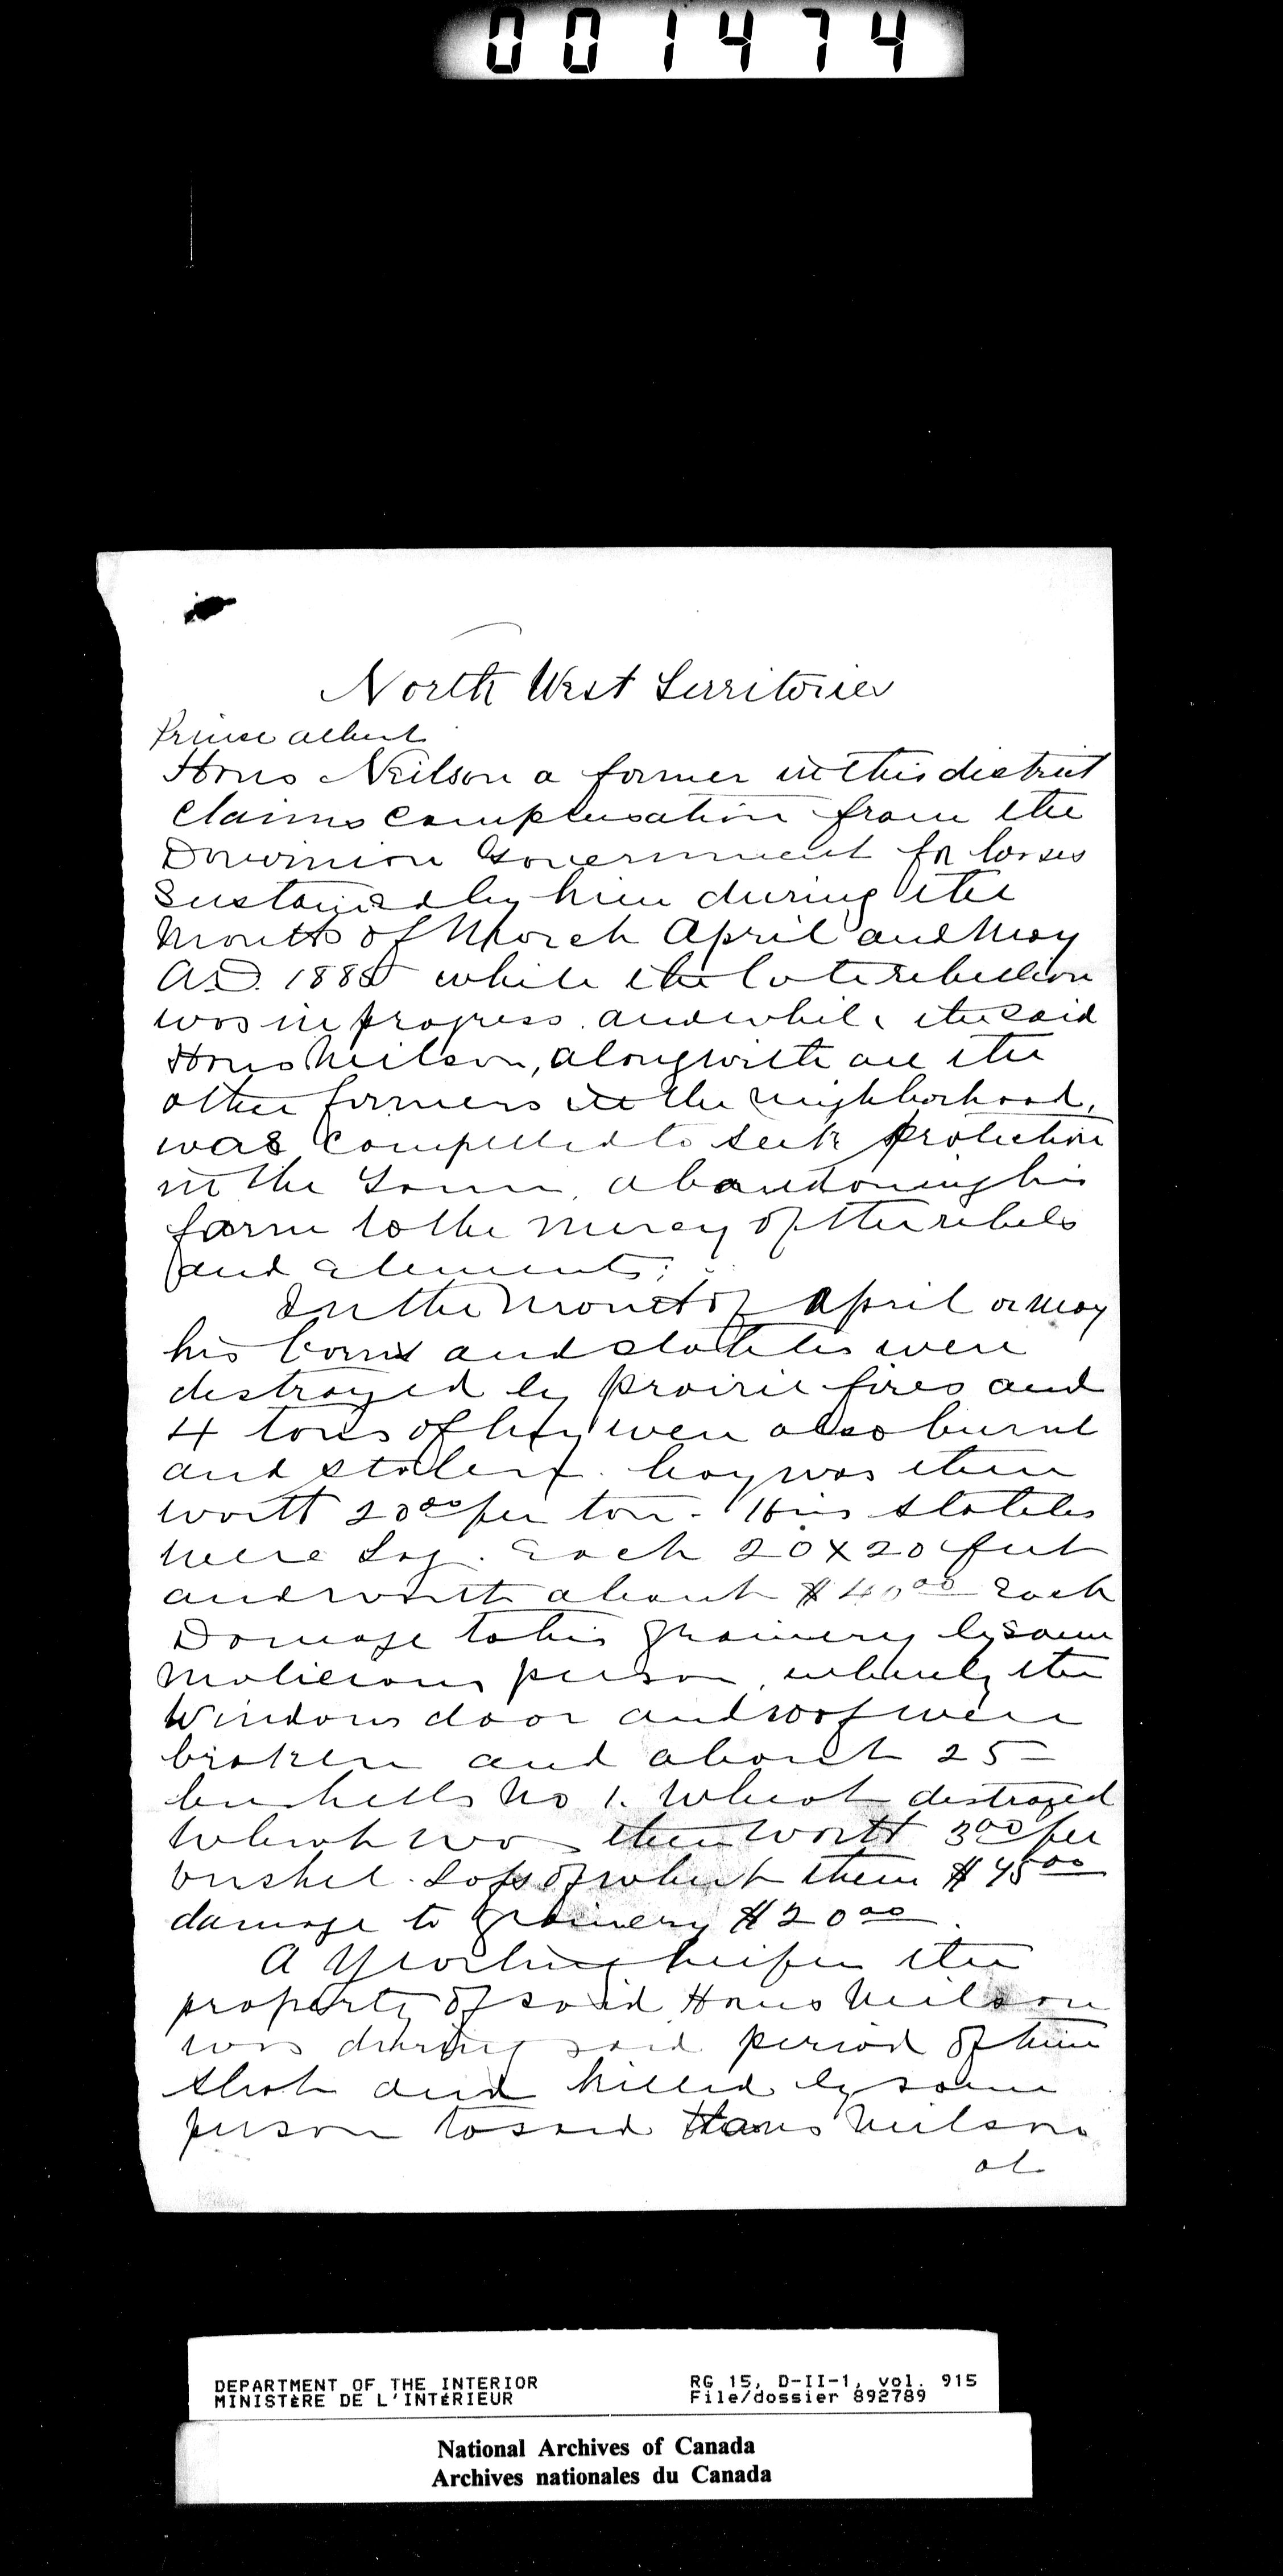 001474
North West Territories
Prince Albert
Hans Neilson a farmer in this district
claims compensation from the
Dominion Government for losses
sustained by him during the
months of March April and May
A.D. 1885 while the late rebellion
was in progress and while the said
Hans Neilson, along with all the
other farmers in the neighborhood,
was compelled to seek protection
in the Town, abandoning his
farm to the mercy of the rebels
and elements;
In the month of April or May
his barns and stables were
destroyed by prairie fires and
4 tons of hay were also burnt
and stolen. hay was then
worth 20.00 per ton. His stables
were Log. Each 20 x 20 feet
and worth about $40.00 Each
Damage to his grainery by some
malicious person, whereby the
Windows door and roof were
broken and about 25
bushells No 1. Wheat destroyed
Wheat was then worth 3.00 per
bushel. Loss of wheat then $75.00
damage to grainery $20.00.
A Yearling heifer the
property of said Hans Neilson
was during said period of time
shot and killed by some
person to said Hans Neilson
at
DEPARTMENT OF THE INTERIOR
MINISTÈRE DE L'INTÉRIEUR
RG 15, D-II-1, vol. 915
File/dossier 892789
National Archives of Canada
Archives nationales du Canada